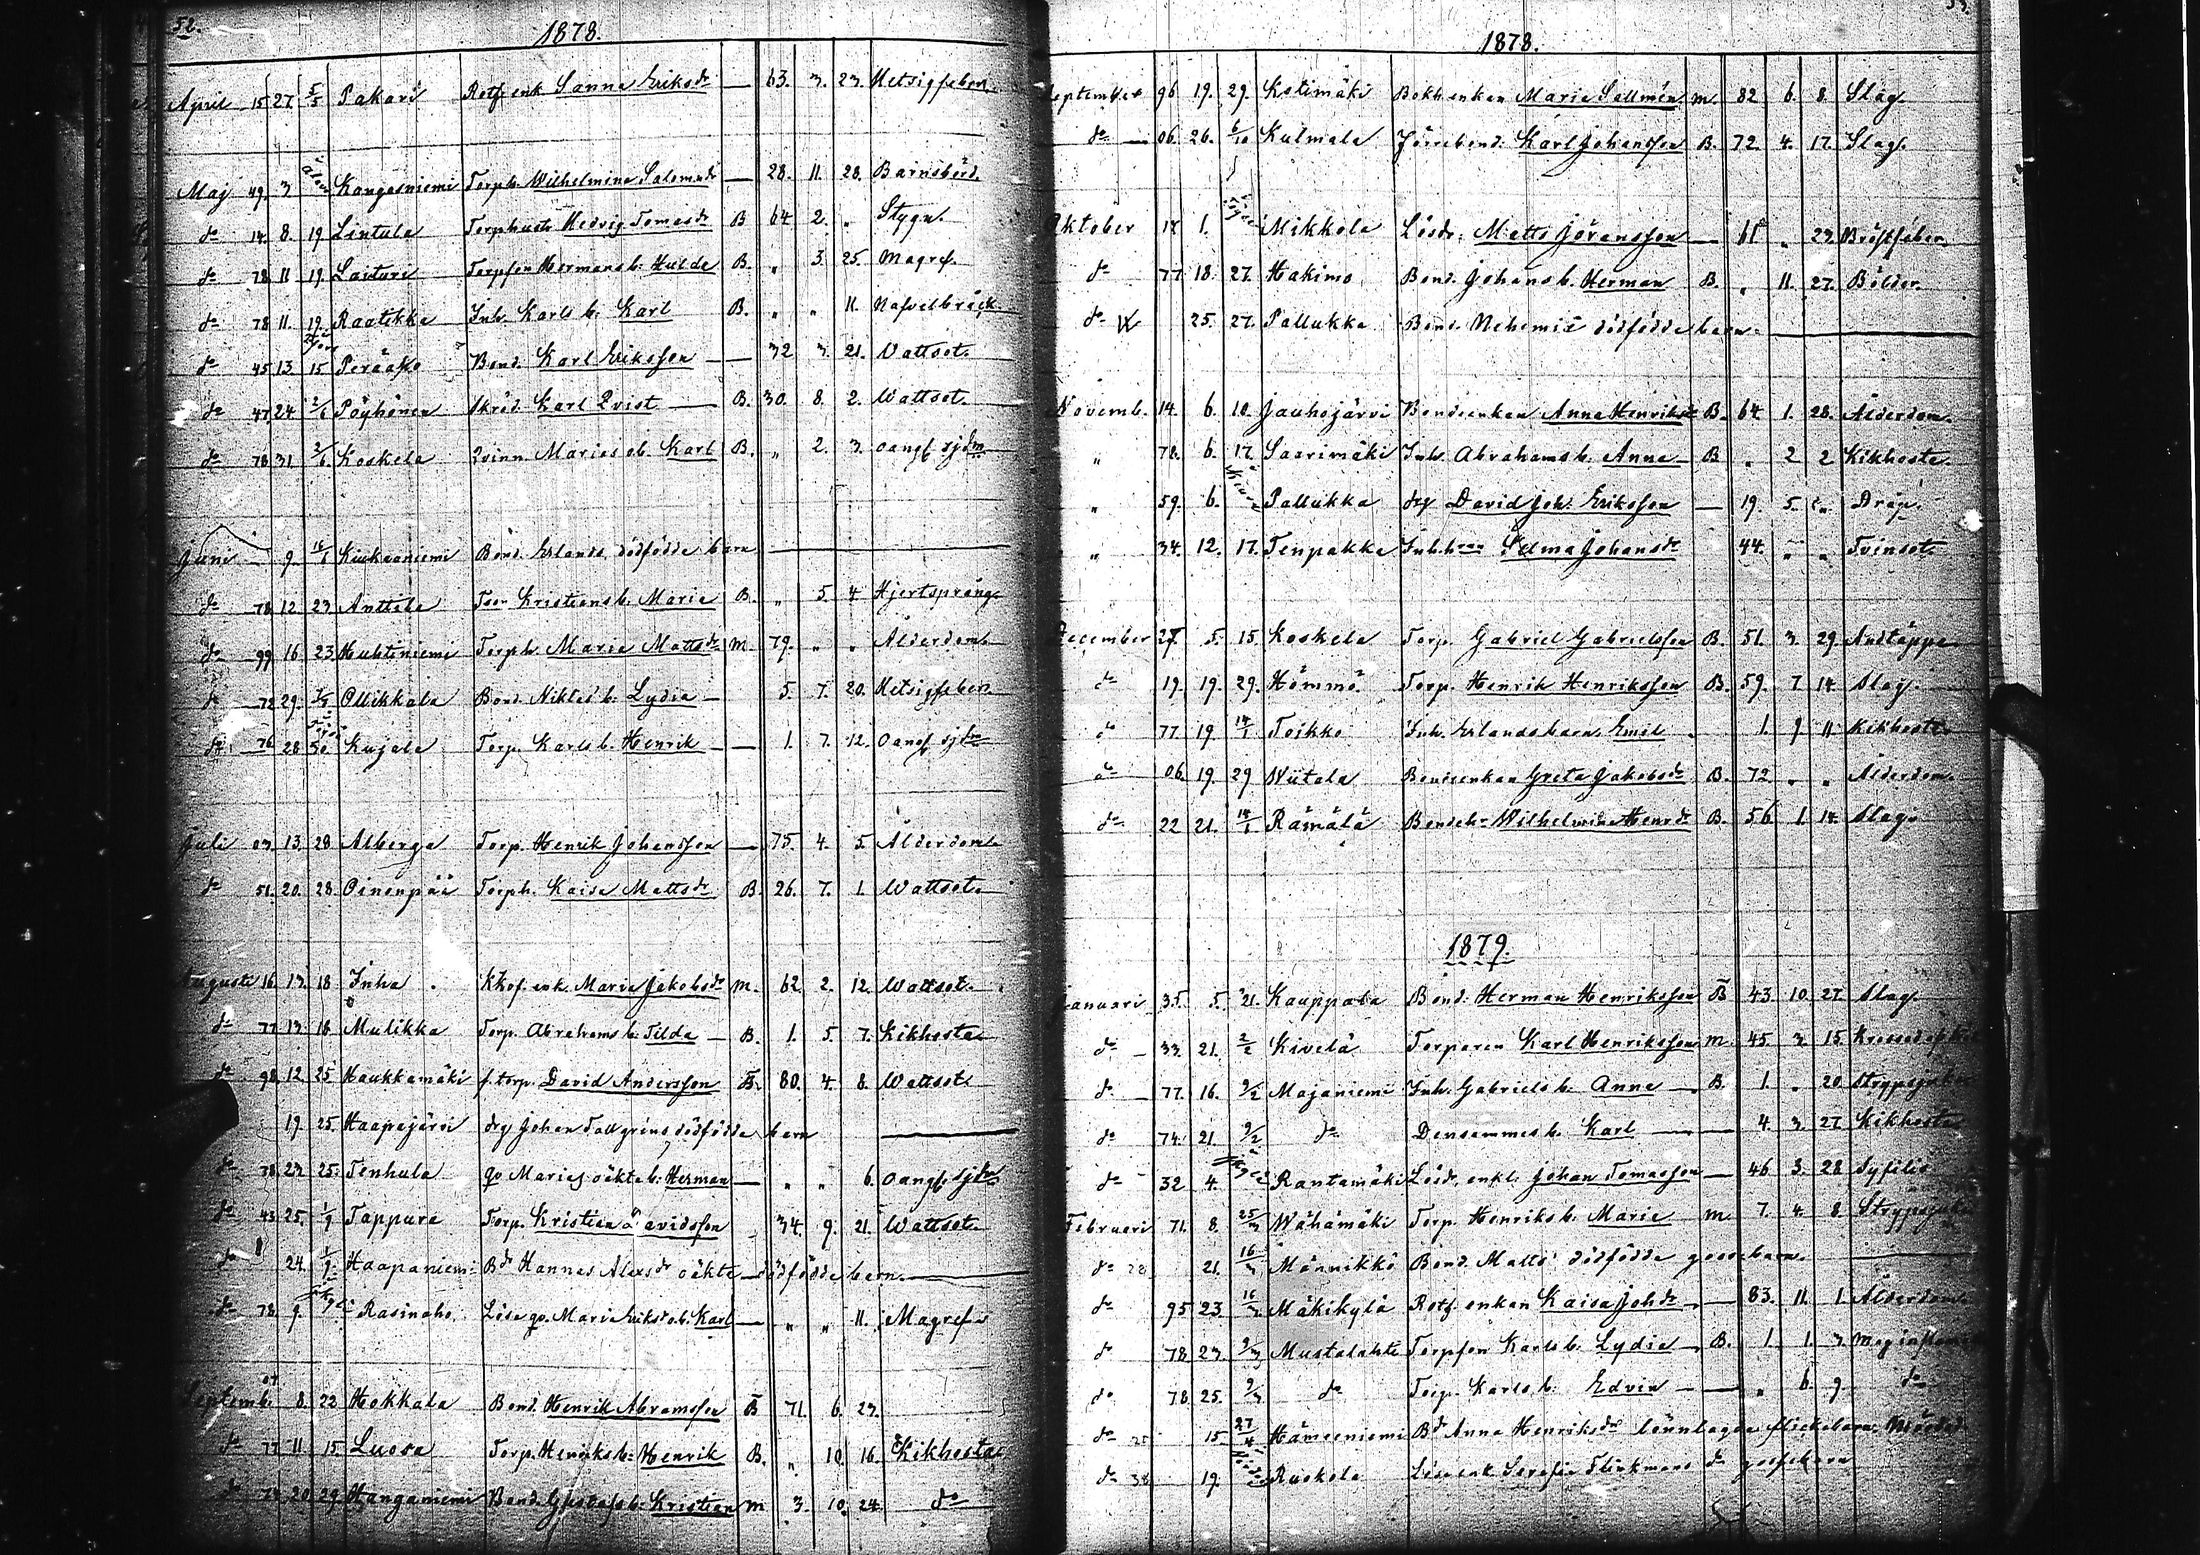 52.
1878.
April 15 27. 5/5 Pakari Rotf enk Sanna Eriksdr — 63. 3. 23. Hetsigfeber.
Maj 49. 3 Kangasniemi Torph. Wilhelmina Salomdr — 28. 11. 28. Barnsbörd.
do 14. 8. 19. Lintula Torphust. Hedvig Tomasdr B 64 2. „ Stygn.
do 78 11 19. Laituri Torpson Hermans b. Hulda B. „ 3. 25. Magref.
do 78 11. 19. Raatikka Inh. Karls b. Karl B. „ „ 11. Nafvelbråck
do 45 13 15 Perääho Bond. Karl Eriksson — 32 3. 21. Vattsot.
do 47. 24 2/6 Pöyhönen Skräd. Karl Qvist — B. 30. 8. 2. Wattsot.
do 78 31 2/6. Koskela Qvinn. Marias ob. Karl B. „ 2. 3. oangf sjdm
Juni — 9. 16/6 Kiukaaniemi Bond. Erlands dödfödda barn —
do 78. 12. 23 Anttila Kristians b. Maria B. „ 5. 4 Hjertsprång.
do 99 16 23 Huhtiniemi Torph. Maria Mattsdr m. 79. „ „ Ålderdomb
do 72 29. Ollikkala Bond. Niklas b. Lydia — 5. 7. 20. Hetsigfeber
do 76 28 Kujala Torp. Karls b. Henrik — 1. 7. 12. oangf sjdm
Juli 03. 13. 28 Alberga Torp. Henrik Johansson — 75. 4. 5. Ålderdomb
do 51. 20. 28. Oinonpää Torph. Kaisa Mattsdr B. 26. 7. 1. Wattsot.
Augusti 16 13. 18 Inha Khof. enk. Maria Jakobsdr m. 62. 2. 12. Wattsot.
do 77 13 18 Mulikka Torp. Abrahams b. Tilda — B. 1. 5. 7. Kikhosta
do 98. 12. 25 Haukkamäki f. torp. David Andersson B. 80. 4. 8. Wattsot
19. 25. Haapajärvi drg Johan Tallgrins dödfödda barn —
do 78 23. 25. Tenhula qv Marias oäkta b. Herman — „ „ 6. oangf. sjdm
do 43 25. 1/9 Tappura Torp. Kristian Davidsson 34. 9. 21. Wattsot.
do 24. 1/9 Haapaniemi Bdr Hannas Alexsdr oäkta dödfödda barn. —
do 78 9. Rasinaho. Lösa qv. Maria Eriksd ob. Karl — „ „ 11. Magref
Septemb. 07 8. 22 Hokkala Bond. Henrik Abramsson B 71. 6. 23.
do 77 11 15 Luosa Torp. Henriks b. Henrik B. „ 10. 16. Kikhosta
do 74 20. 29 Hanganiemi Bond. Gustafs b. Kristian m 3. 10. 24. do
1878.
September 96 19. 29. Kotimäki Bokh enkan Maria Sallmén m. 82 6. 8. Slag.
do — 06. 26. 6/10 Kulmala Förrebond. Karl Johansson B. 72. 4. 17. Slag.
Oktober 17 1. Mikkola Lösdr. Matts Jöransson — 61 „ 23. Bröstfeber
do 77. 18. 27. Hakimo Bond. Johans b. Herman B. „ 11. 27. Bölder.
do 25. 27. Pallukka Bond. Nehemias dödfödda barn —
Novemb. 14. 6. 10. Jauhojärvi Bondeenkan Anna Henriksdr B. 64. 1. 28. Ålderdom.
„ 78. 6. 17. Saarimäki Inh. Abrahams b. Anna — B „ 2 2 Kikhosta.
„ 59. 6. Pallukka drg David Joh. Eriksson — 19. 5. „ Dråp.
„ 34. 12. 17. Tenpakka Inh. Selma Johansdr 44. „ „ Tvinsot.
December 27. 5. 15. Koskela Torp. Gabriel Gabrielsson B. 51. 3. 29. Andtäppa
do 19. 19. 29. Hömmö Torp. Henrik Henriksson B. 59. 7 14. Slag.
do 77. 19 14/1 Toikko Inh. Erlands barn Emil 1. 9 11 Kikhosta
do 06. 19. 29 Wiitala Bondeenkan Greta Jakobsdr B. 72 „ „ Ålderdom.
do 22 21. 14/1 Rämälä Bondeh. Wilhelmina Henrdr B. 56 1. 14. Slag.
1879.
Januari 35. 5. 21. Kauppala Bond. Herman Henriksson B 43. 10. 27. Slag.
do — 33. 21. 2/2 Kivelä Torparen Karl Henriksson m. 45. 3. 15.
do — 77. 16. 9/2 Majaniemi Inh. Gabriels b. Anna — B. 1. „ 20.
do 74. 21. 9/2 do Densammes b. Karl — 4. 3. 27. Kikhosta
do 32 4. Rantamäki Lösdr. enkl. Johan Tomasson — 46 3. 28 Syfilis
Februari 71. 8. 25/3 Wähämäki Torp. Henriks b. Maria — m. 7. 4. 8. Strypsjuka
do 28 21. 16/3 Männikkö Bond. Matts dödfödda gossebarn. —
do 95 23. 16/3 Mäkikylä Rotf. enkan Kaisa Johdr — 83. 11. 1. Ålderdom
do 78 23. 9/3 Mustalahti Torpson Karls b. Lydia — B. 1. 1. 3.
do 78 25. 9/3 do Torp. Karls b. Edvin — „ 6. 9. do
do 25 15. 27/4 Hämeeniemi Bdr Anna Henriksdr lönnlagda flickebarn. Mördad
do 38 19. Ruokola Lösa enk Serafia Flinkmans do gossebarn